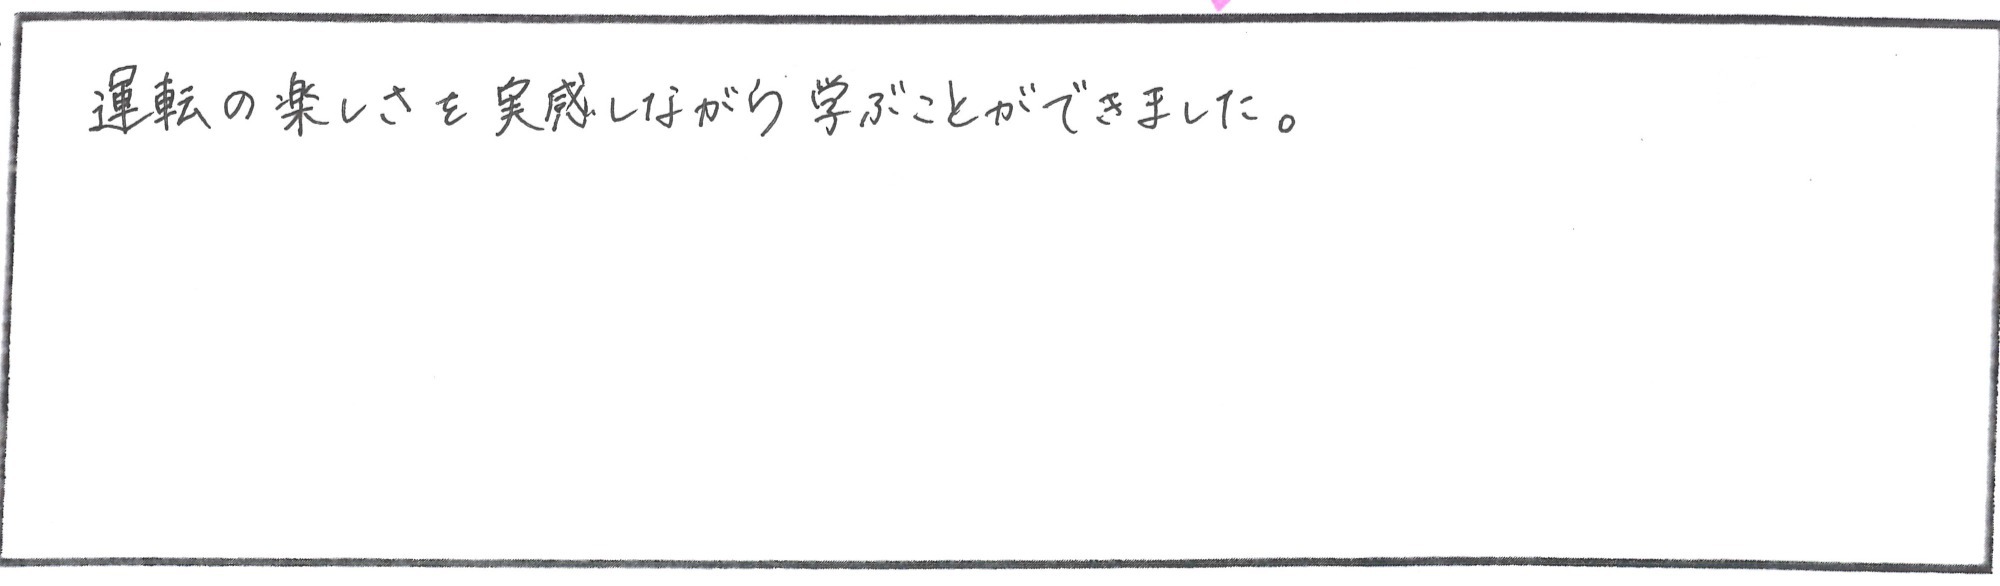 運転の楽しさを実感しながら学ぶことができました。